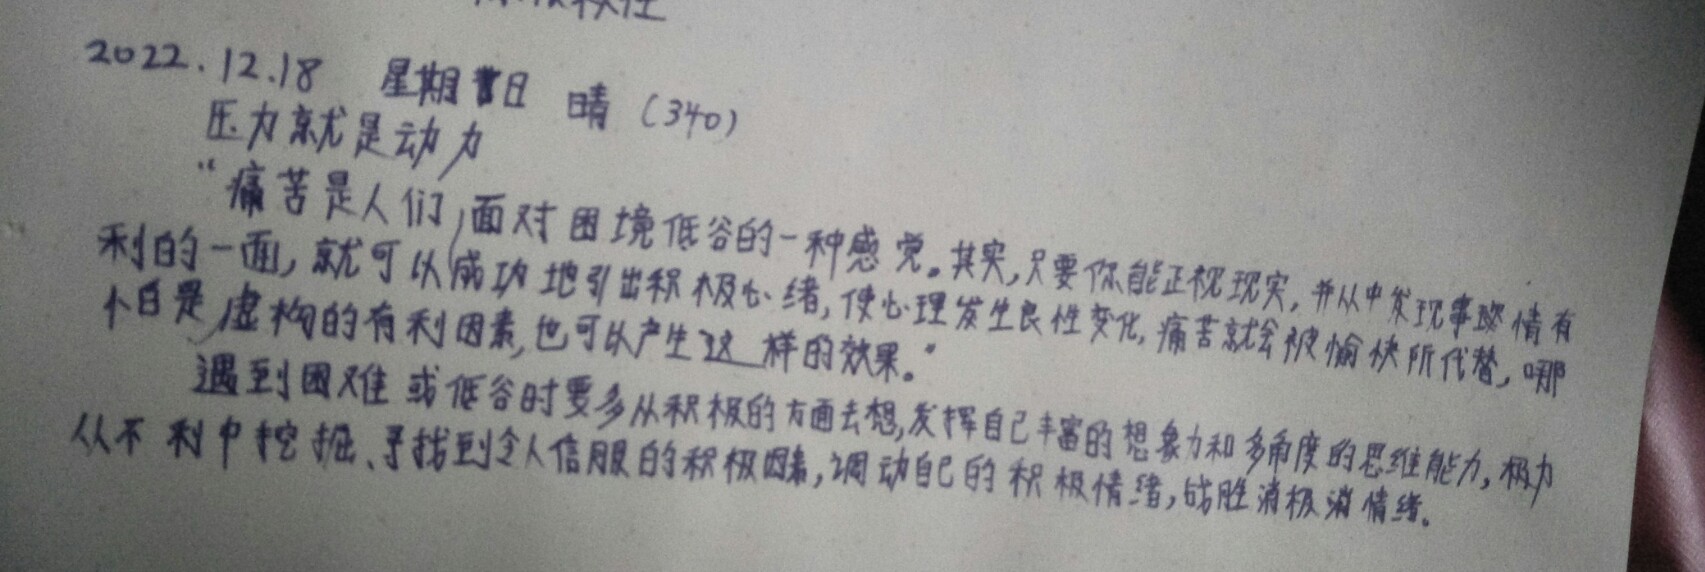 积性
2022.12.18 星期日 晴（340）
压力就是动力
“痛苦是人们面对困境低谷的一种感觉。其实，只要你能正视现实，并从中发现事情有
利的一面，就可以成功地引出积极心绪，使心理发生良性变化，痛苦就会被愉快所代替，哪
怕是虚构的有利因素，也可以产生这样的效果。”
遇到困难或低谷时要多从积极的方面去想，发挥自己丰富的想象力和多角度的思维能力，极力
从不利中挖掘、寻找到令人信服的积极因素，调动自己的积极情绪，战胜消极情绪。